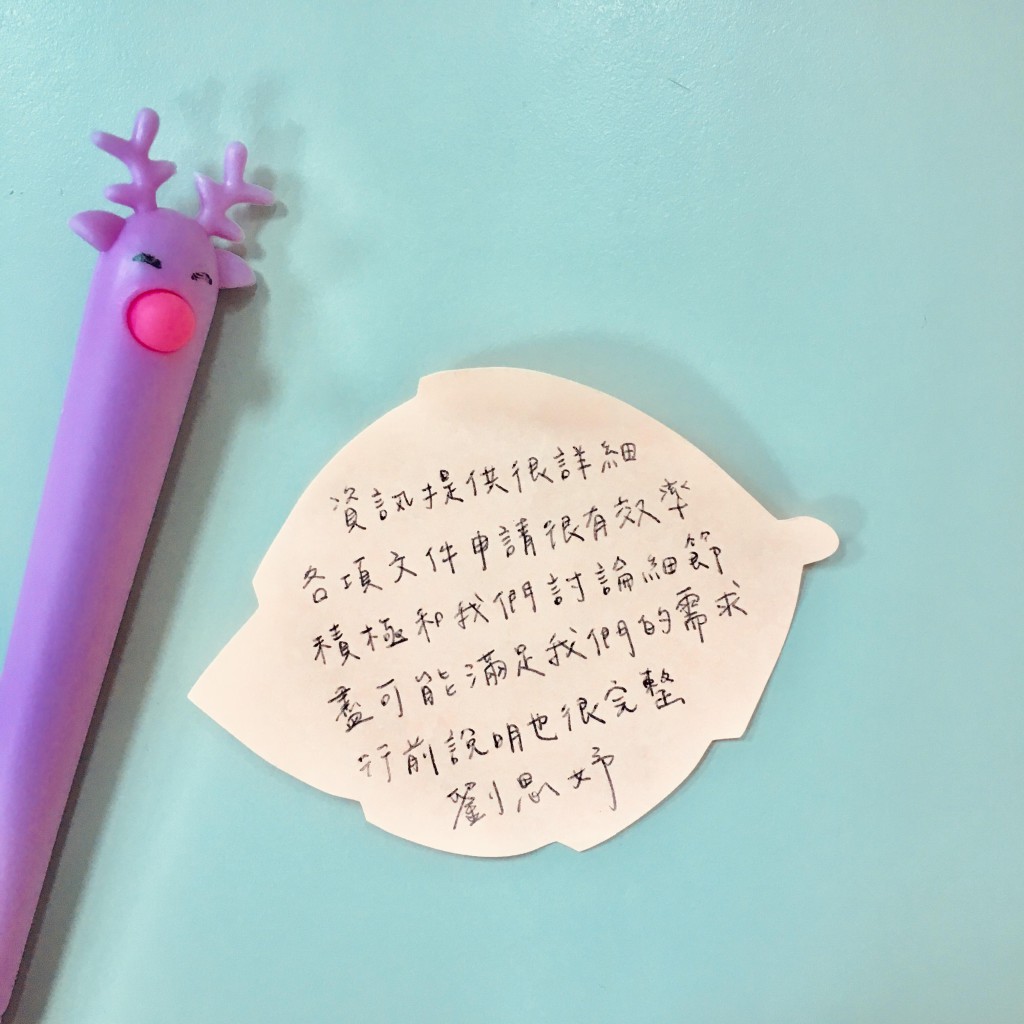 資訊提供很詳細
各項文件申請很有效率
積極和我們討論細節
盡可能滿足我們的需求
行前說明也很完整
劉恩妤